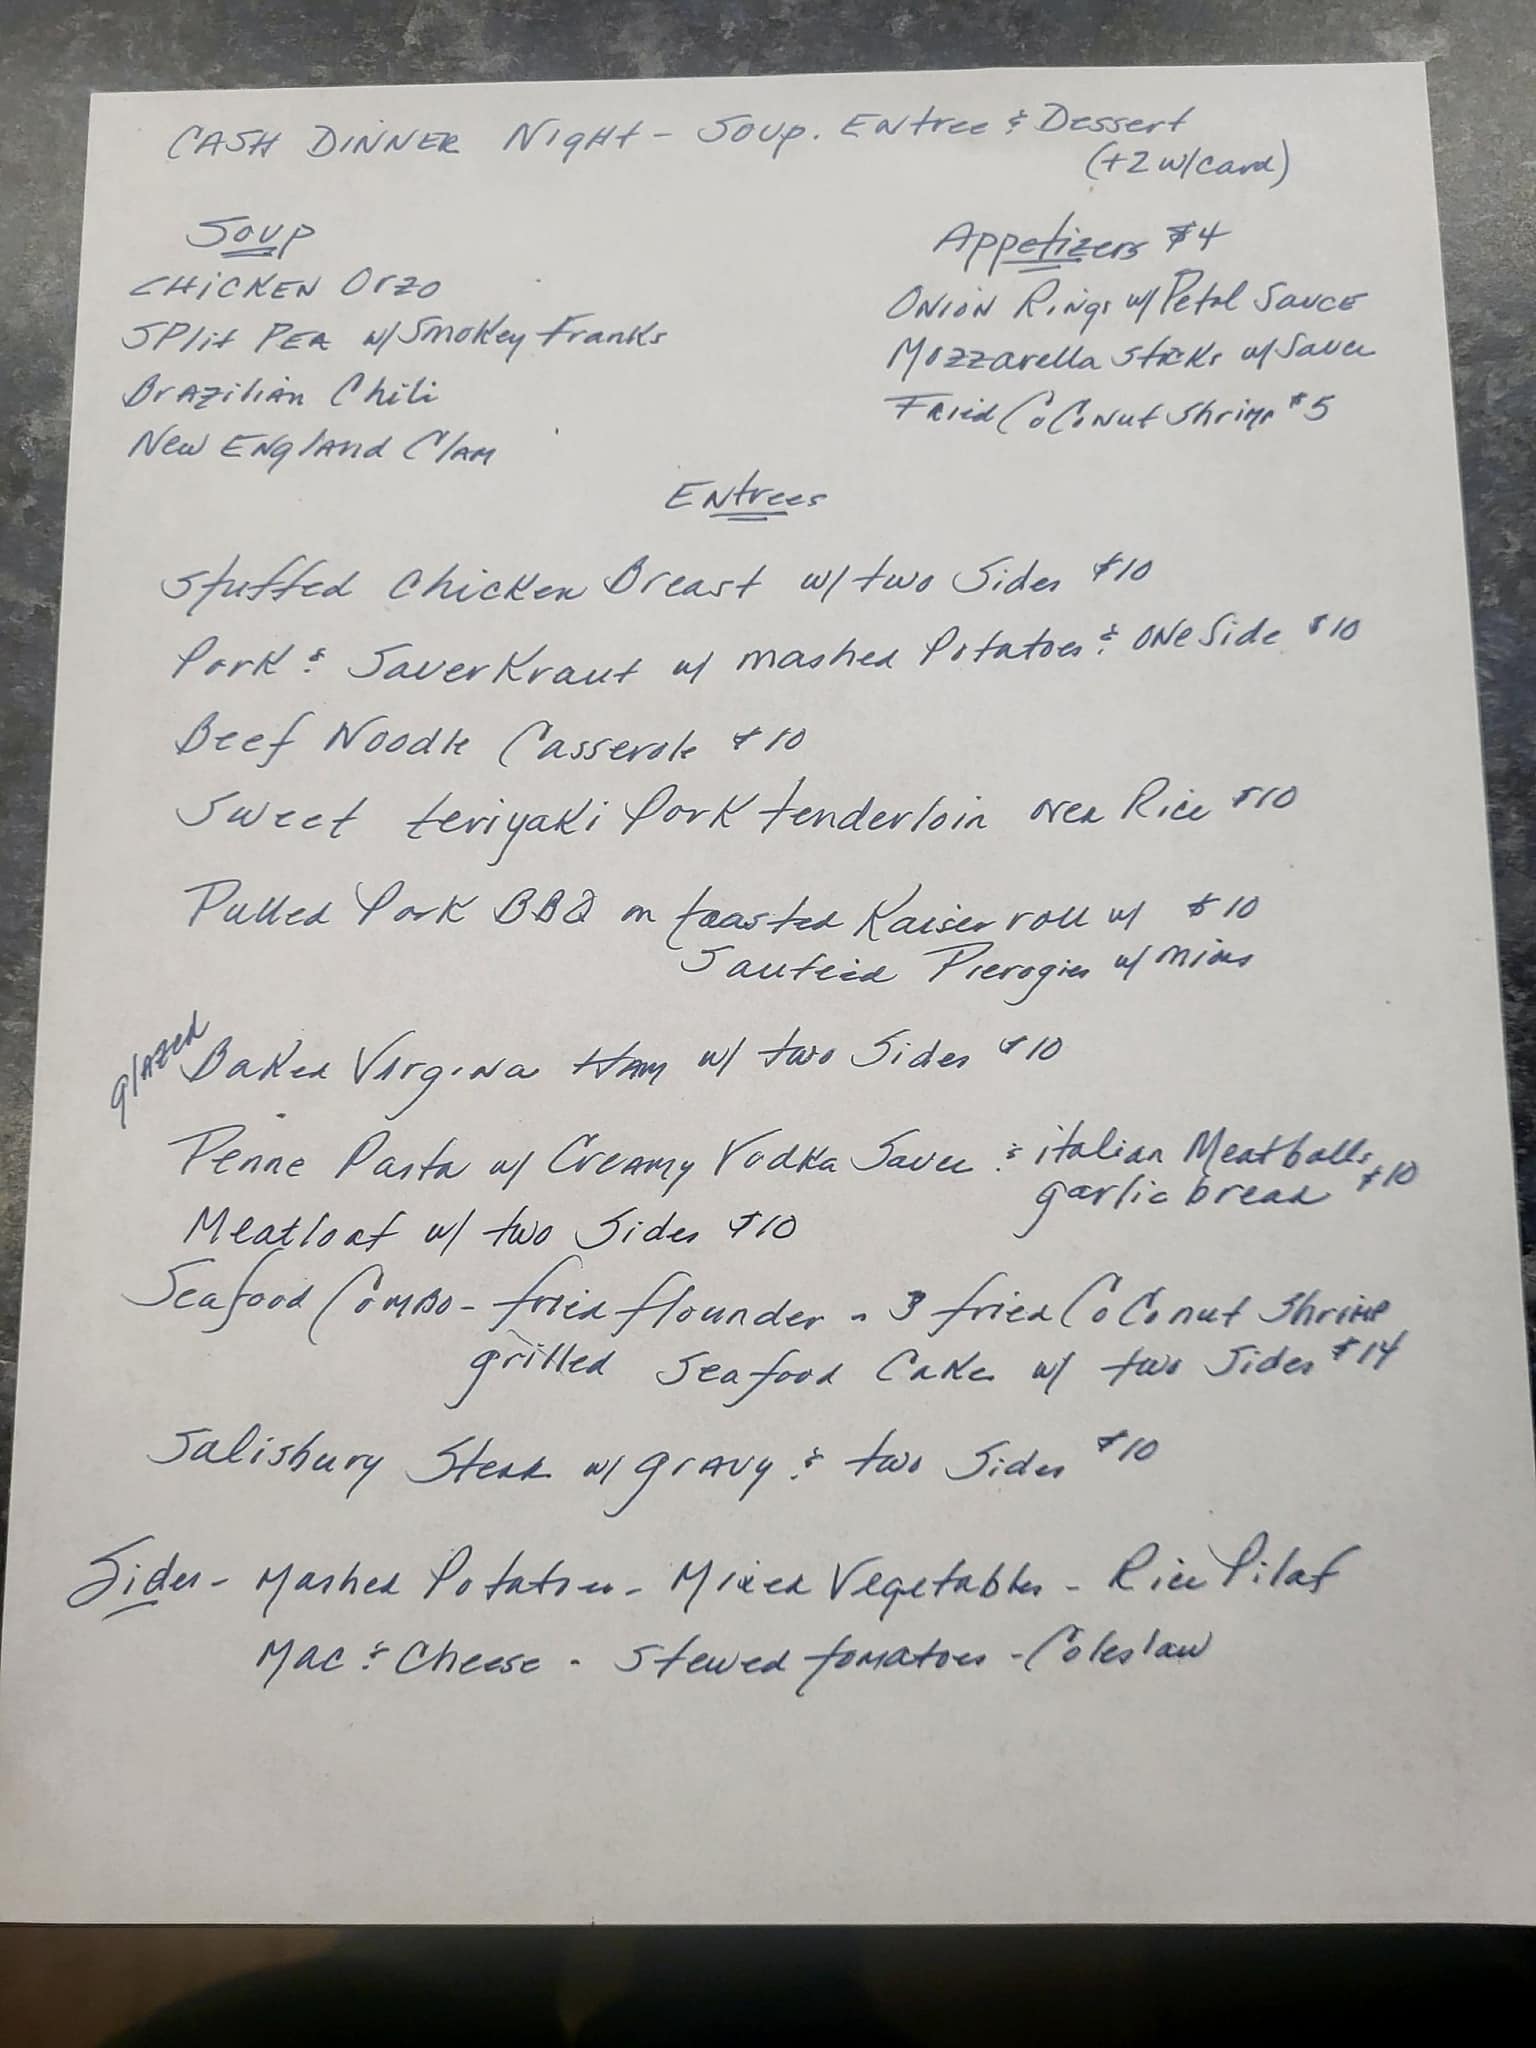 CASH DINNER Night - Soup. Entree & Dessert
(+2 w/card)
Soup
CHICKEN Orzo
Split PEA w/ Smokey Franks
Brazilian Chili
New England Clam
Appetizers $4
Onion Rings w/ Petal Sauce
Mozzarella Sticks w/ Sauce
Fried Coconut Shrimp $5
Entrees
Stuffed Chicken Breast w/ two Sides $10
Pork & Sauerkraut w/ mashed Potatoes & one Side $10
Beef Noodle Casserole $10
Sweet teriyaki Pork tenderloin over Rice $10
Pulled Pork BBQ on toasted Kaiser roll w/ $10
Sauteed Pierogies w/
glazed
Baked Virgina Ham w/ two Sides $10
Penne Pasta w/ Creamy Vodka Sauce & italian Meatballs
garlic bread $10
Meatloaf w/ two Sides $10
Seafood Combo - fried flounder - 3 fried Coconut Shrimp
grilled Seafood Cake w/ two Sides $14
Salisbury Steak w/ gravy & two Sides $10
Sides - Mashed Potatoes - Mixed Vegetables - Rice Pilaf
Mac & Cheese - Stewed tomatoes - Coleslaw